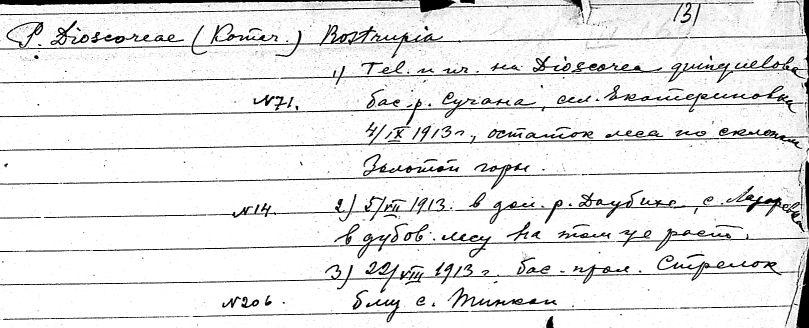 131
P. Dioscoreae (Komar.) Rostrupia
1) Tel. и ur. на Dioscorea quinqueloba
N71. бас. р. Сучана, сел. Екатериновка
4/IX 1913 г., остаток леса по склонам
Золотой горы.
N14. 2) 5/VII 1913. в дол. р. Даубихе, с. Лазаревка
в дубов. лесу на том же раст.
3) 22/VIII 1913 г. бас. прол. Стрелок
N206. близ с. Тинкан